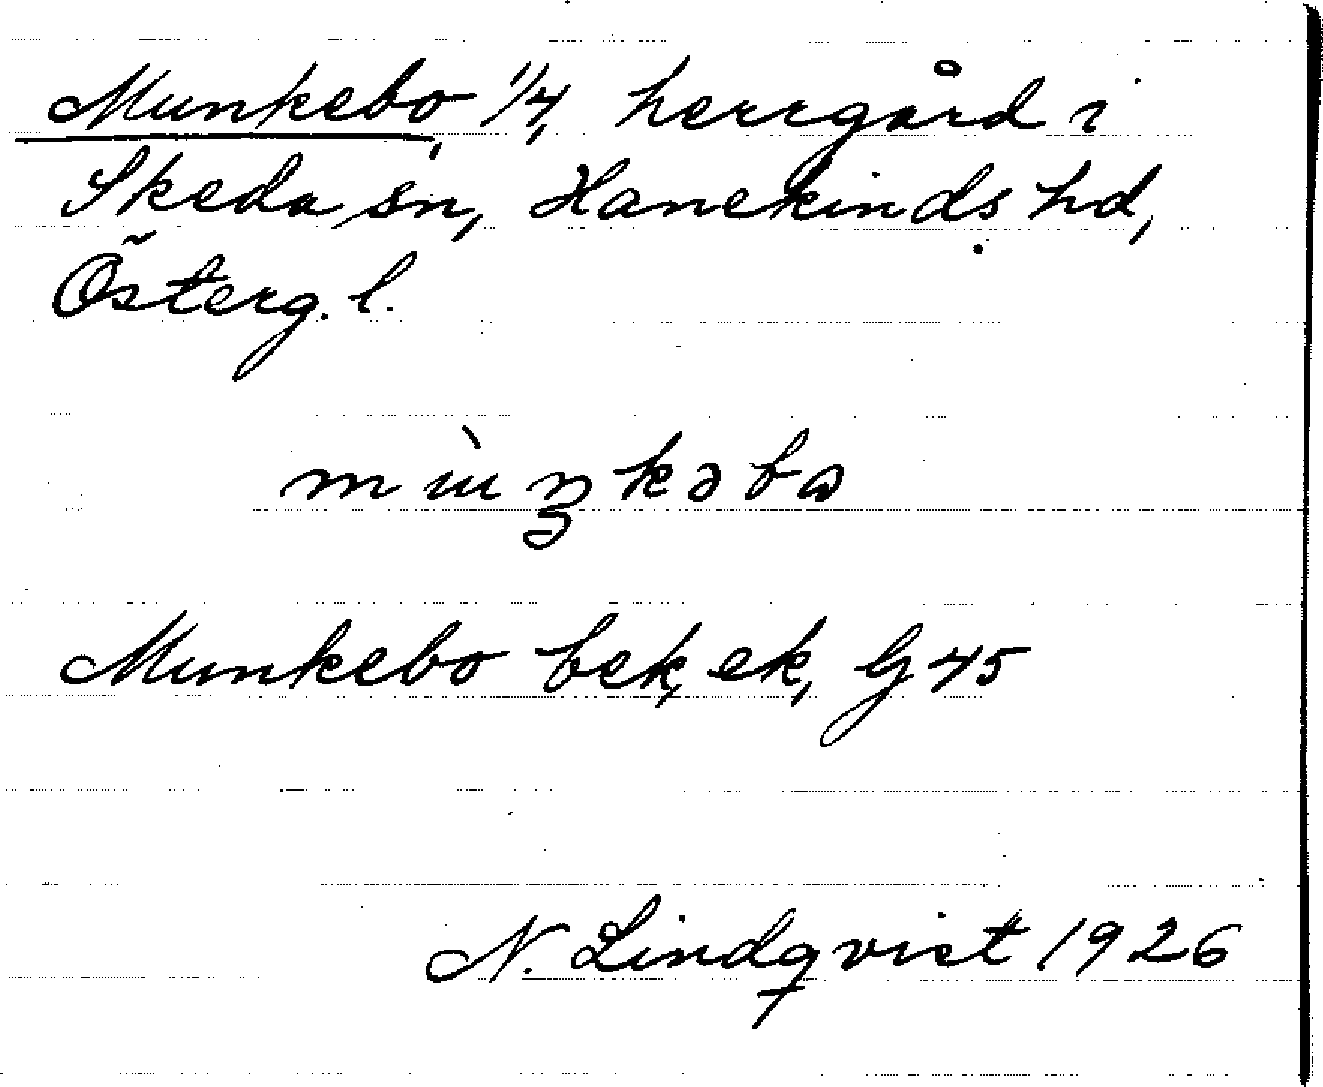 Munkebo, 1/4, herrgård i
Skeda sn, Hanekinds hd,
Österg. l.
mùŋkəbɷ
Munkebo bek, ek, G 45
N. Lindqvist 1926